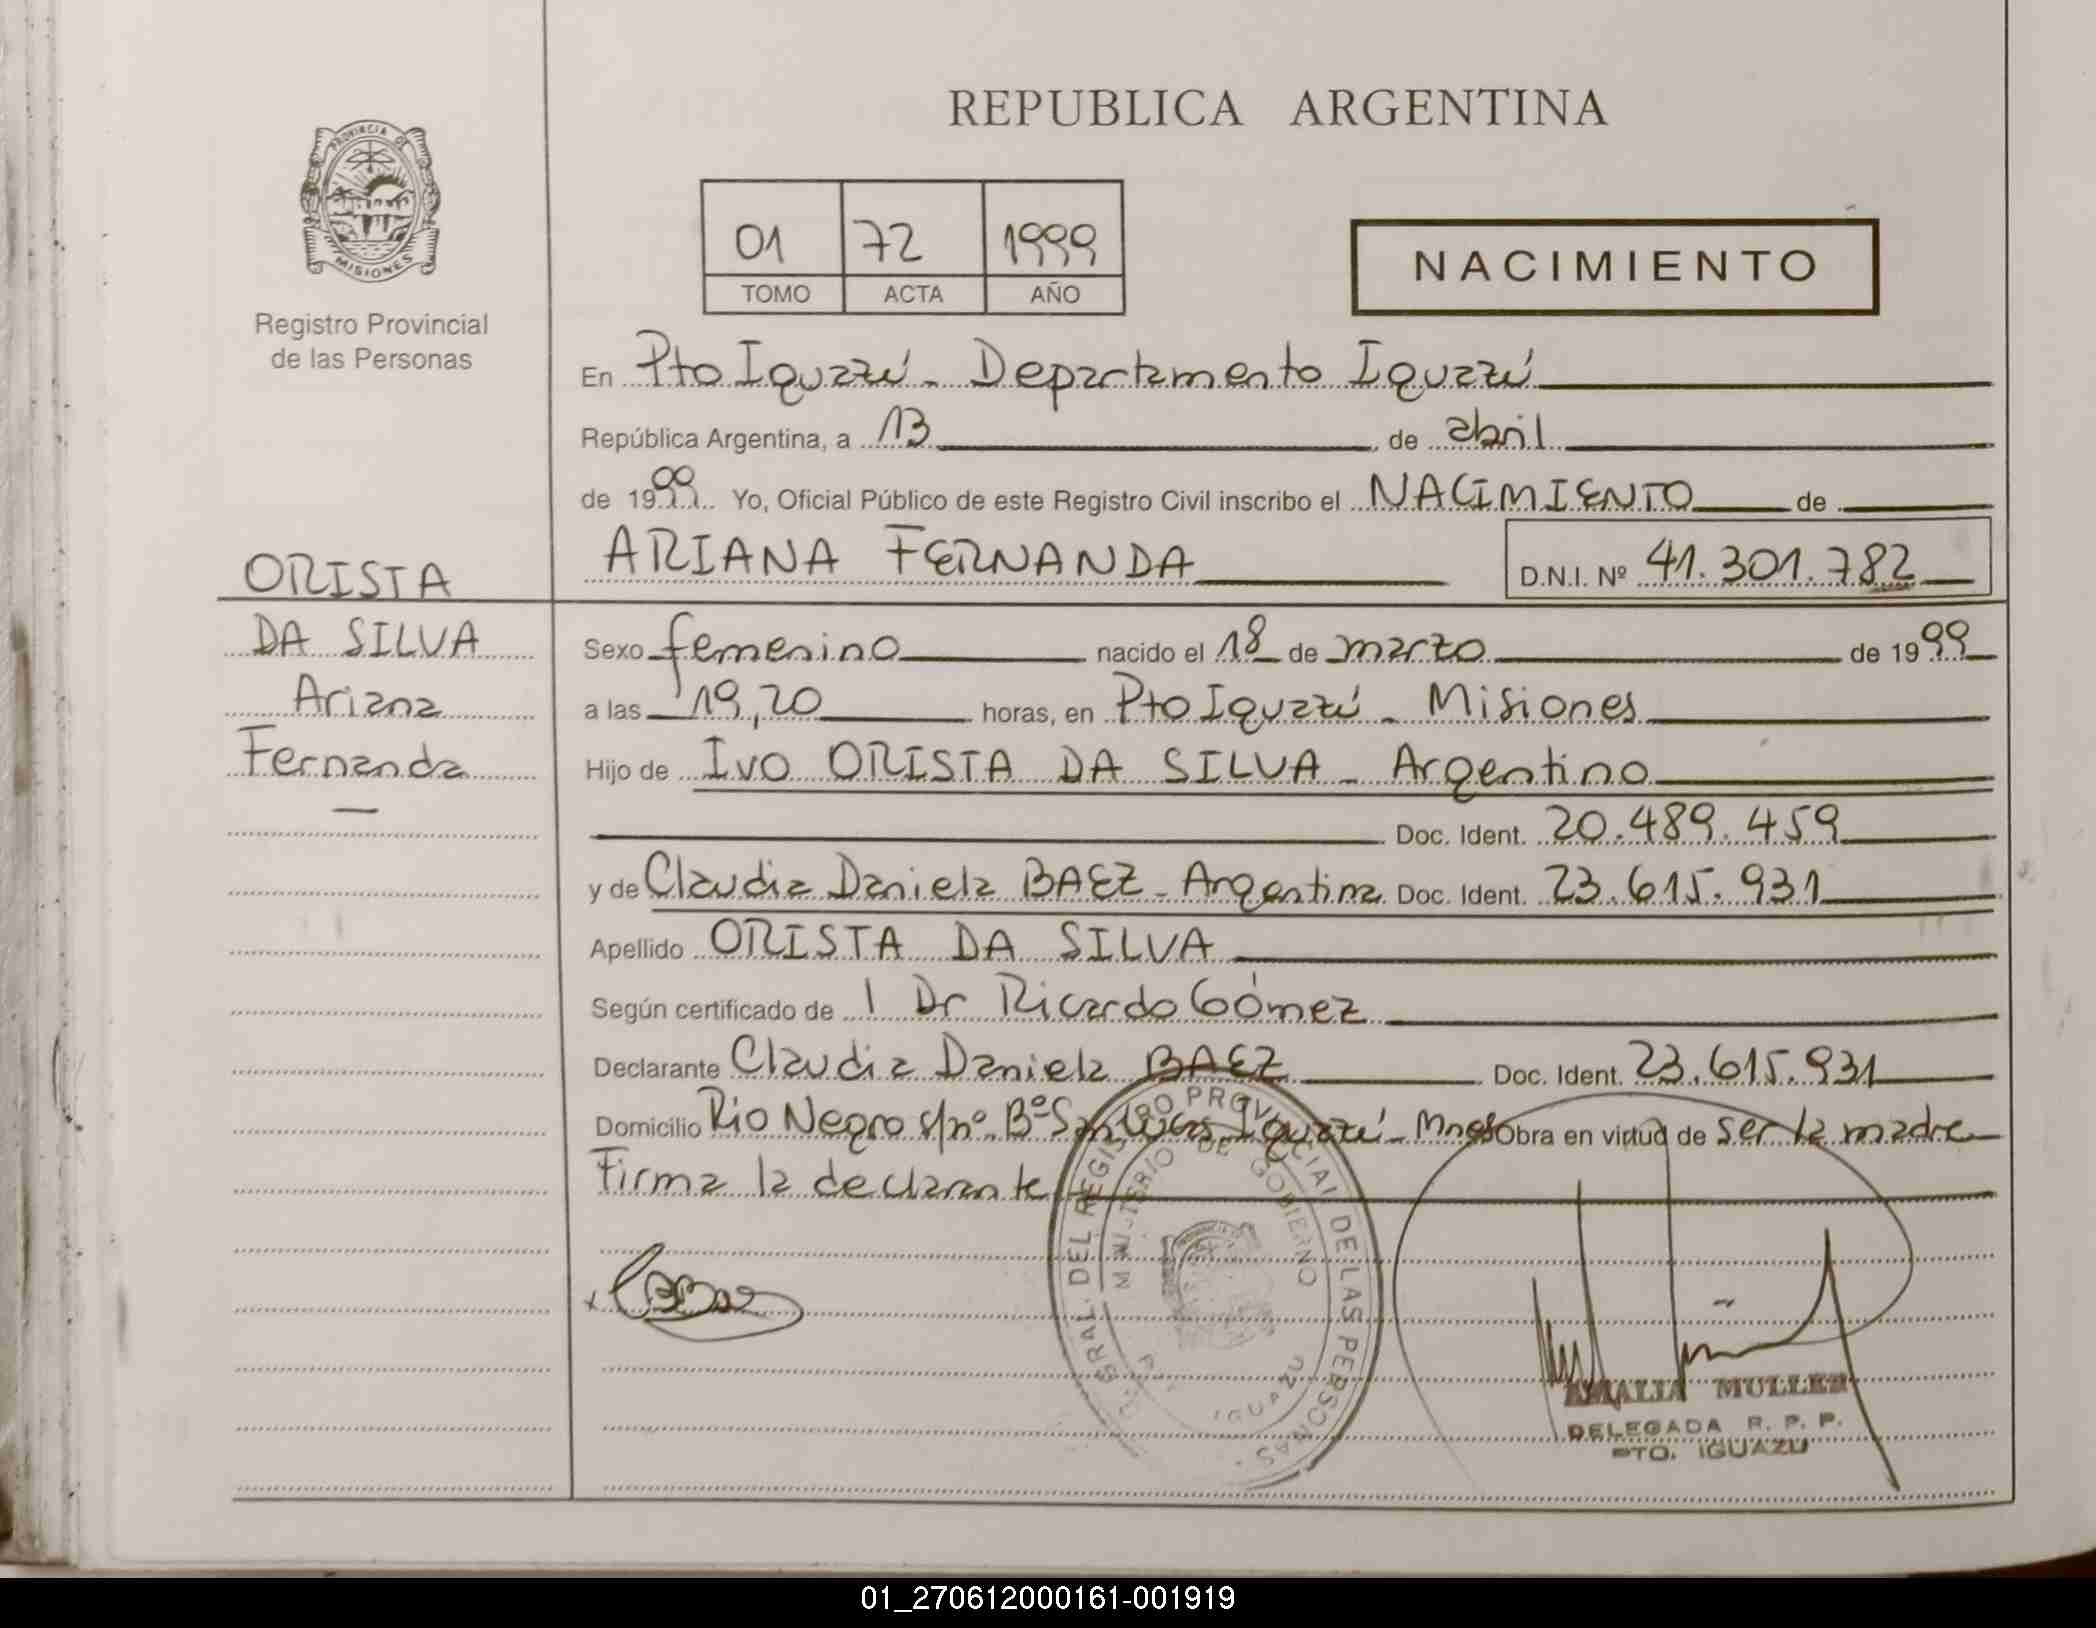 REPUBLICA ARGENTINA
PROVINCIA DE
MISIONES
Registro Provincial
de las Personas
01 72 1999
TOMO ACTA AÑO
NACIMIENTO
En Pto Iguazú - Departamento Iguazú
República Argentina, a 13 de abril
de 1999 Yo, Oficial Público de este Registro Civil inscribo el NACIMIENTO de
ARIANA FERNANDA D.N.I. Nº 41.301.782
ORISTA
DA SILVA
Ariana
Fernanda
Sexo femenino nacido el 18 de marzo de 1999
a las 19,20 horas, en Pto Iguazú - Misiones
Hijo de Ivo ORISTA DA SILVA - Argentino
Doc. Ident. 20.489.459
y de Claudia Daniela BAEZ - Argentina Doc. Ident. 23.615.931
Apellido ORISTA DA SILVA
Según certificado de 1 Dr Ricardo Gómez
Declarante Claudia Daniela BAEZ Doc. Ident. 23.615.931
Domicilio Rio Negro s/nº Bº Iguazú - Mnes Obra en virtud de ser la madre
Firma la declarante
DEL REGISTRO PROVINCIAL DE LAS PERSONAS
MINISTERIO DE GOBIERNO
IGUAZU
AMALIA MULLER
DELEGADA R. P. P.
PTO. IGUAZU
01_270612000161-001919